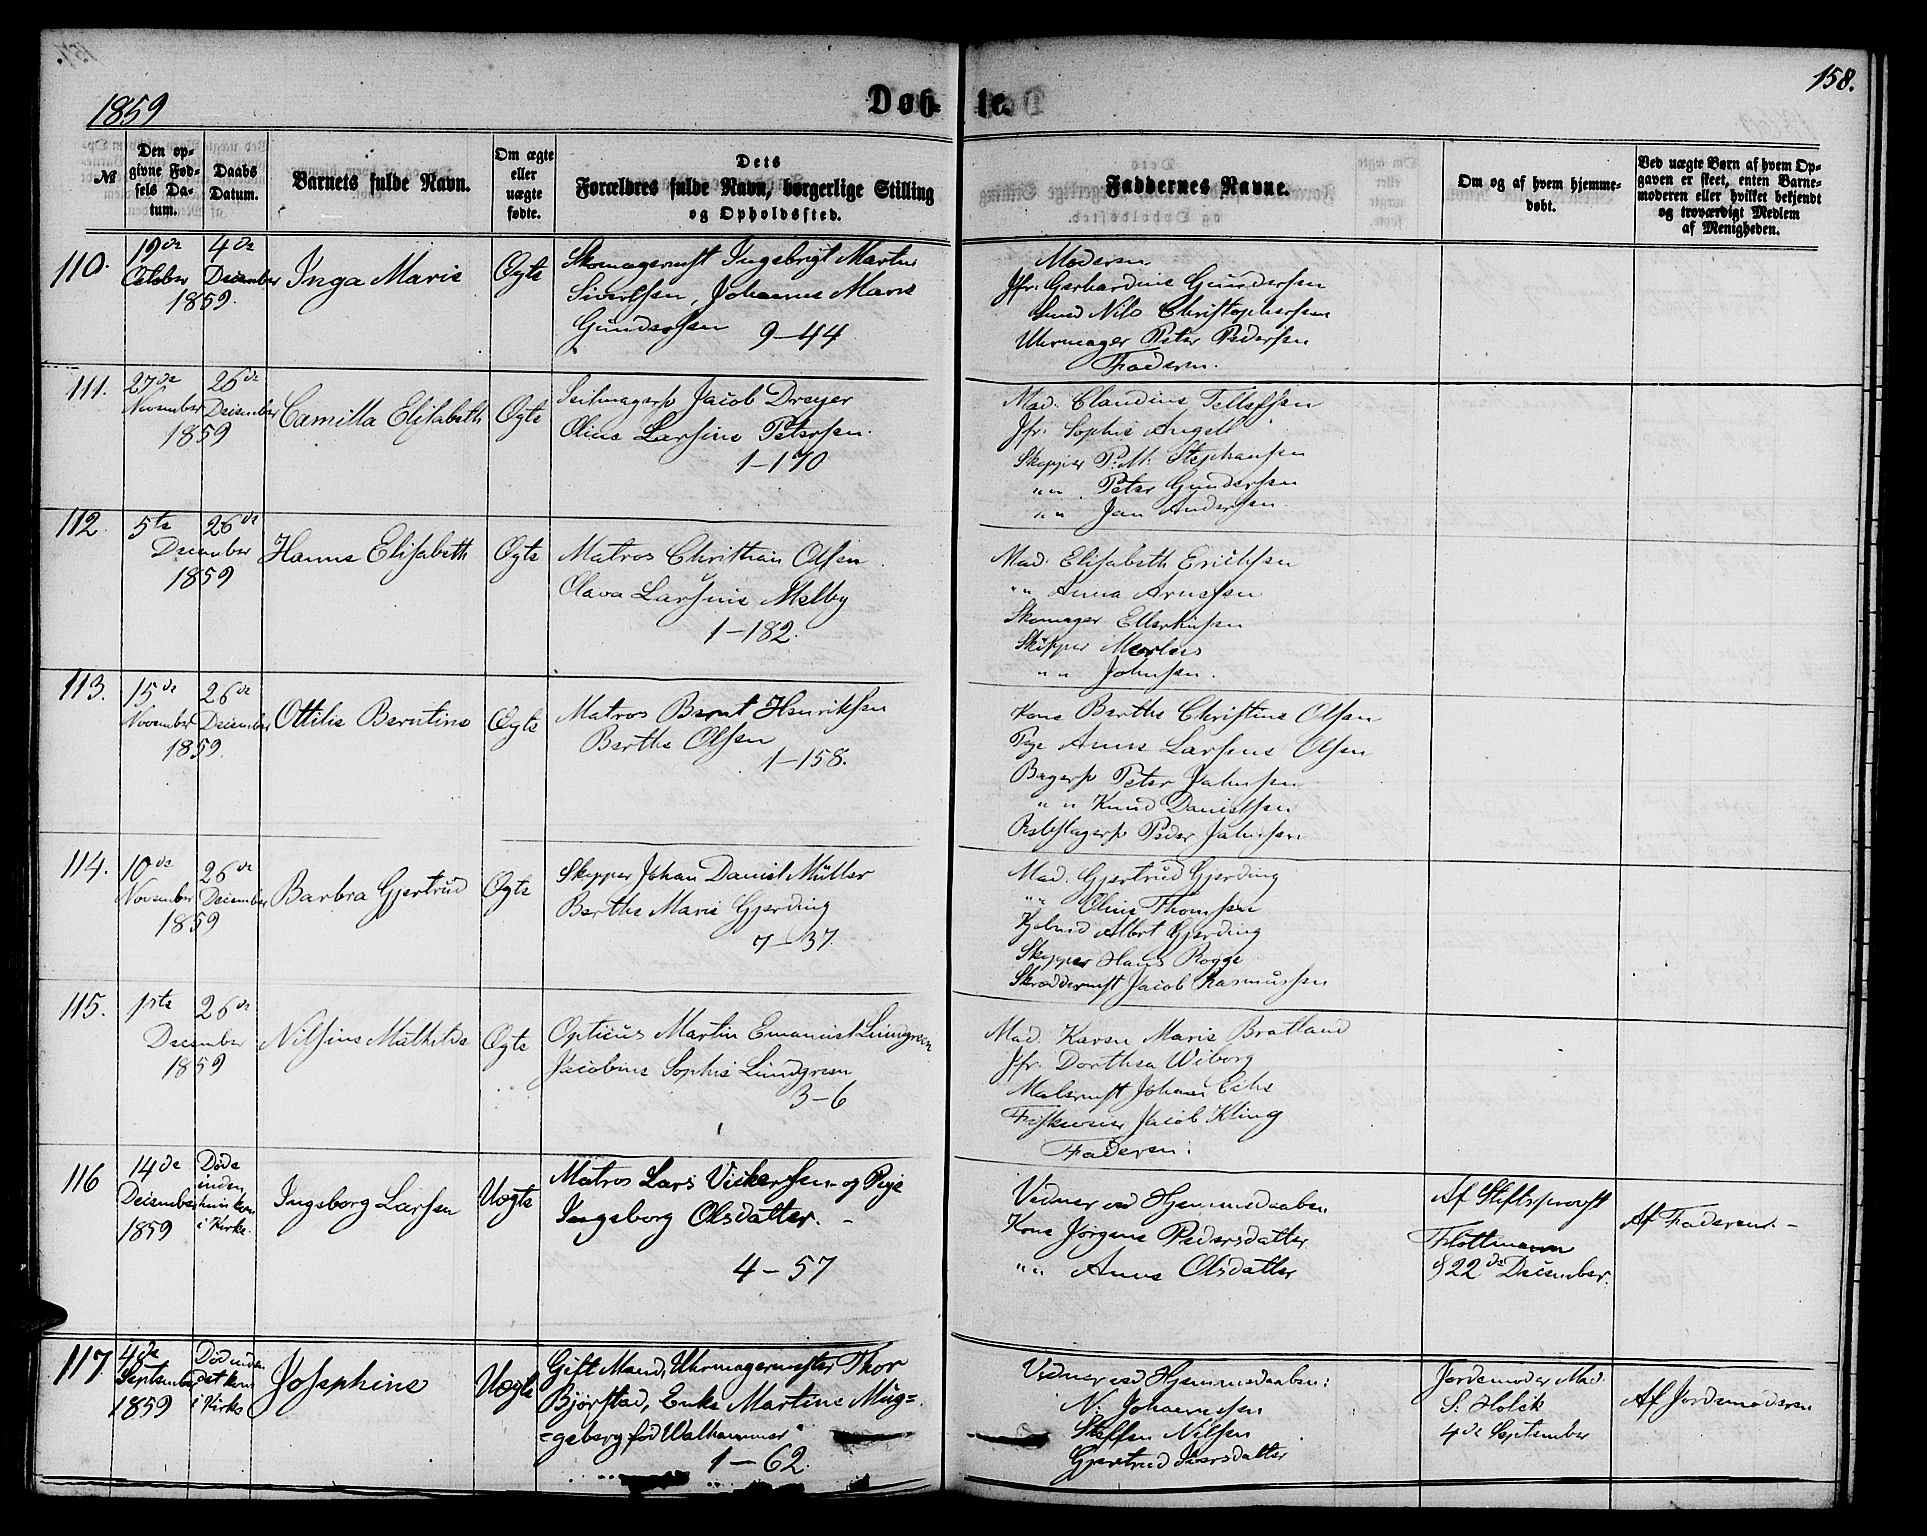 158.
1859
Døb-
te.
№
Den op-
givne Fød-
sels Da-
tum.
Daabs
Datum.
Barnets fulde Navn.
Om ægte
eller
uægte
fødte.
Dets
Forældres fulde Navn, borgerlige Stilling
og Opholdssted.
Faddernes Navne.
Om og af hvem hjemme-
døbt.
Ved uægte Børn af hvem Op-
gaven er skeet, enten Barne-
moderen eller hvilket bekjendt
og troværdigt Medlem
af Menigheden.
110.
19de
October
1859.
4de
December
Inga Marie
Ægte
Skomagermst Ingebrigt Martin
Sivertsen, Johanne Marie
Gundersen
9–44
Moderen
Jfr. Gerhardine Gundersen
Smed Nils Christophersen
Uhrmager Peter Pedersen
Faderen.
111.
27de
November
1859
26de
December
Camilla Elisabeth
Ægte
Seilmagersv Jacob Dreyer
Oline Larsine Petersen.
1–170
Mad. Claudine Tellefsen
Jfr. Sophie Angell
Skipper P. M. Stephansen
"" Peter Gundersen
"" Jan Andersen.
112.
5te
December
1859
26de
Hanne Elisabeth
Ægte
Matros Christian Olsen
Olava Larsine Melby
1–182.
Mad. Elisabeth Erichsen
"" Anna Arnesen
Skomager Ellerhusen
Skipper
"" Johnsen.
113.
15de
November
1859.
26de
December
Ottilie Berntine
Ægte
Matros Bernt Henriksen
Berthe Olsen
1–158.
Kone Berthe Christine Olsen
Pige Anne Larsine Olsen
Bagersv Peter Johnsen
"" Knud Danielsen
Rebslagersv Peder Johnsen
114.
10de
November
1859
26de
December
Barbra Gjertrud
Ægte
Skipper Johan Daniel Müller
Berthe Marie Gjerding
7–37.
Mad. Gjertrud Gjerding
"" Oline Thomsen
Albert Gjerding
Skipper Hans Rogge
Skræddermst Jacob Rasmussen
115.
1ste
December
1859
26de
Nilsine Mathilde
Ægte
Opticus Martin Emanuel Lundgreen
Jacobine Sophie Lundgreen
3–6
Mad. Karen Marie Bratland
Jfr. Dorthea Wiborg
Malermst Johan
Jacob Kling
Faderen.
116
14de
December
1859
Døde
inden
hun kom
i Kirke.
Ingeborg Larsen
Uægte
Matros Lars Vickersen og Pige
Ingeborg Olsdatter. –
4–57
Vidner ved Hjemmedaaben
Kone Jørgine Pedersdatter
"" Anne Olsdatter
Af Stiftsprovst
Flottmann
d 22de December.
Af Faderen. –
117.
4de
September
1859
Død inden
det kom
i Kirke
Josephine
Uægte
Gift Mand, Uhrmagermester Thor
Bjørstad, Enke Martine Müg=
=geberg, fød Walhammer
1–62
Vidner ved Hjemmedaaben:
N. Johannesen
Steffen Nilsen
Gjertrud Iversdatter
Jordemoder Mad.
S. Holck
4de September
Af Jordemoderen